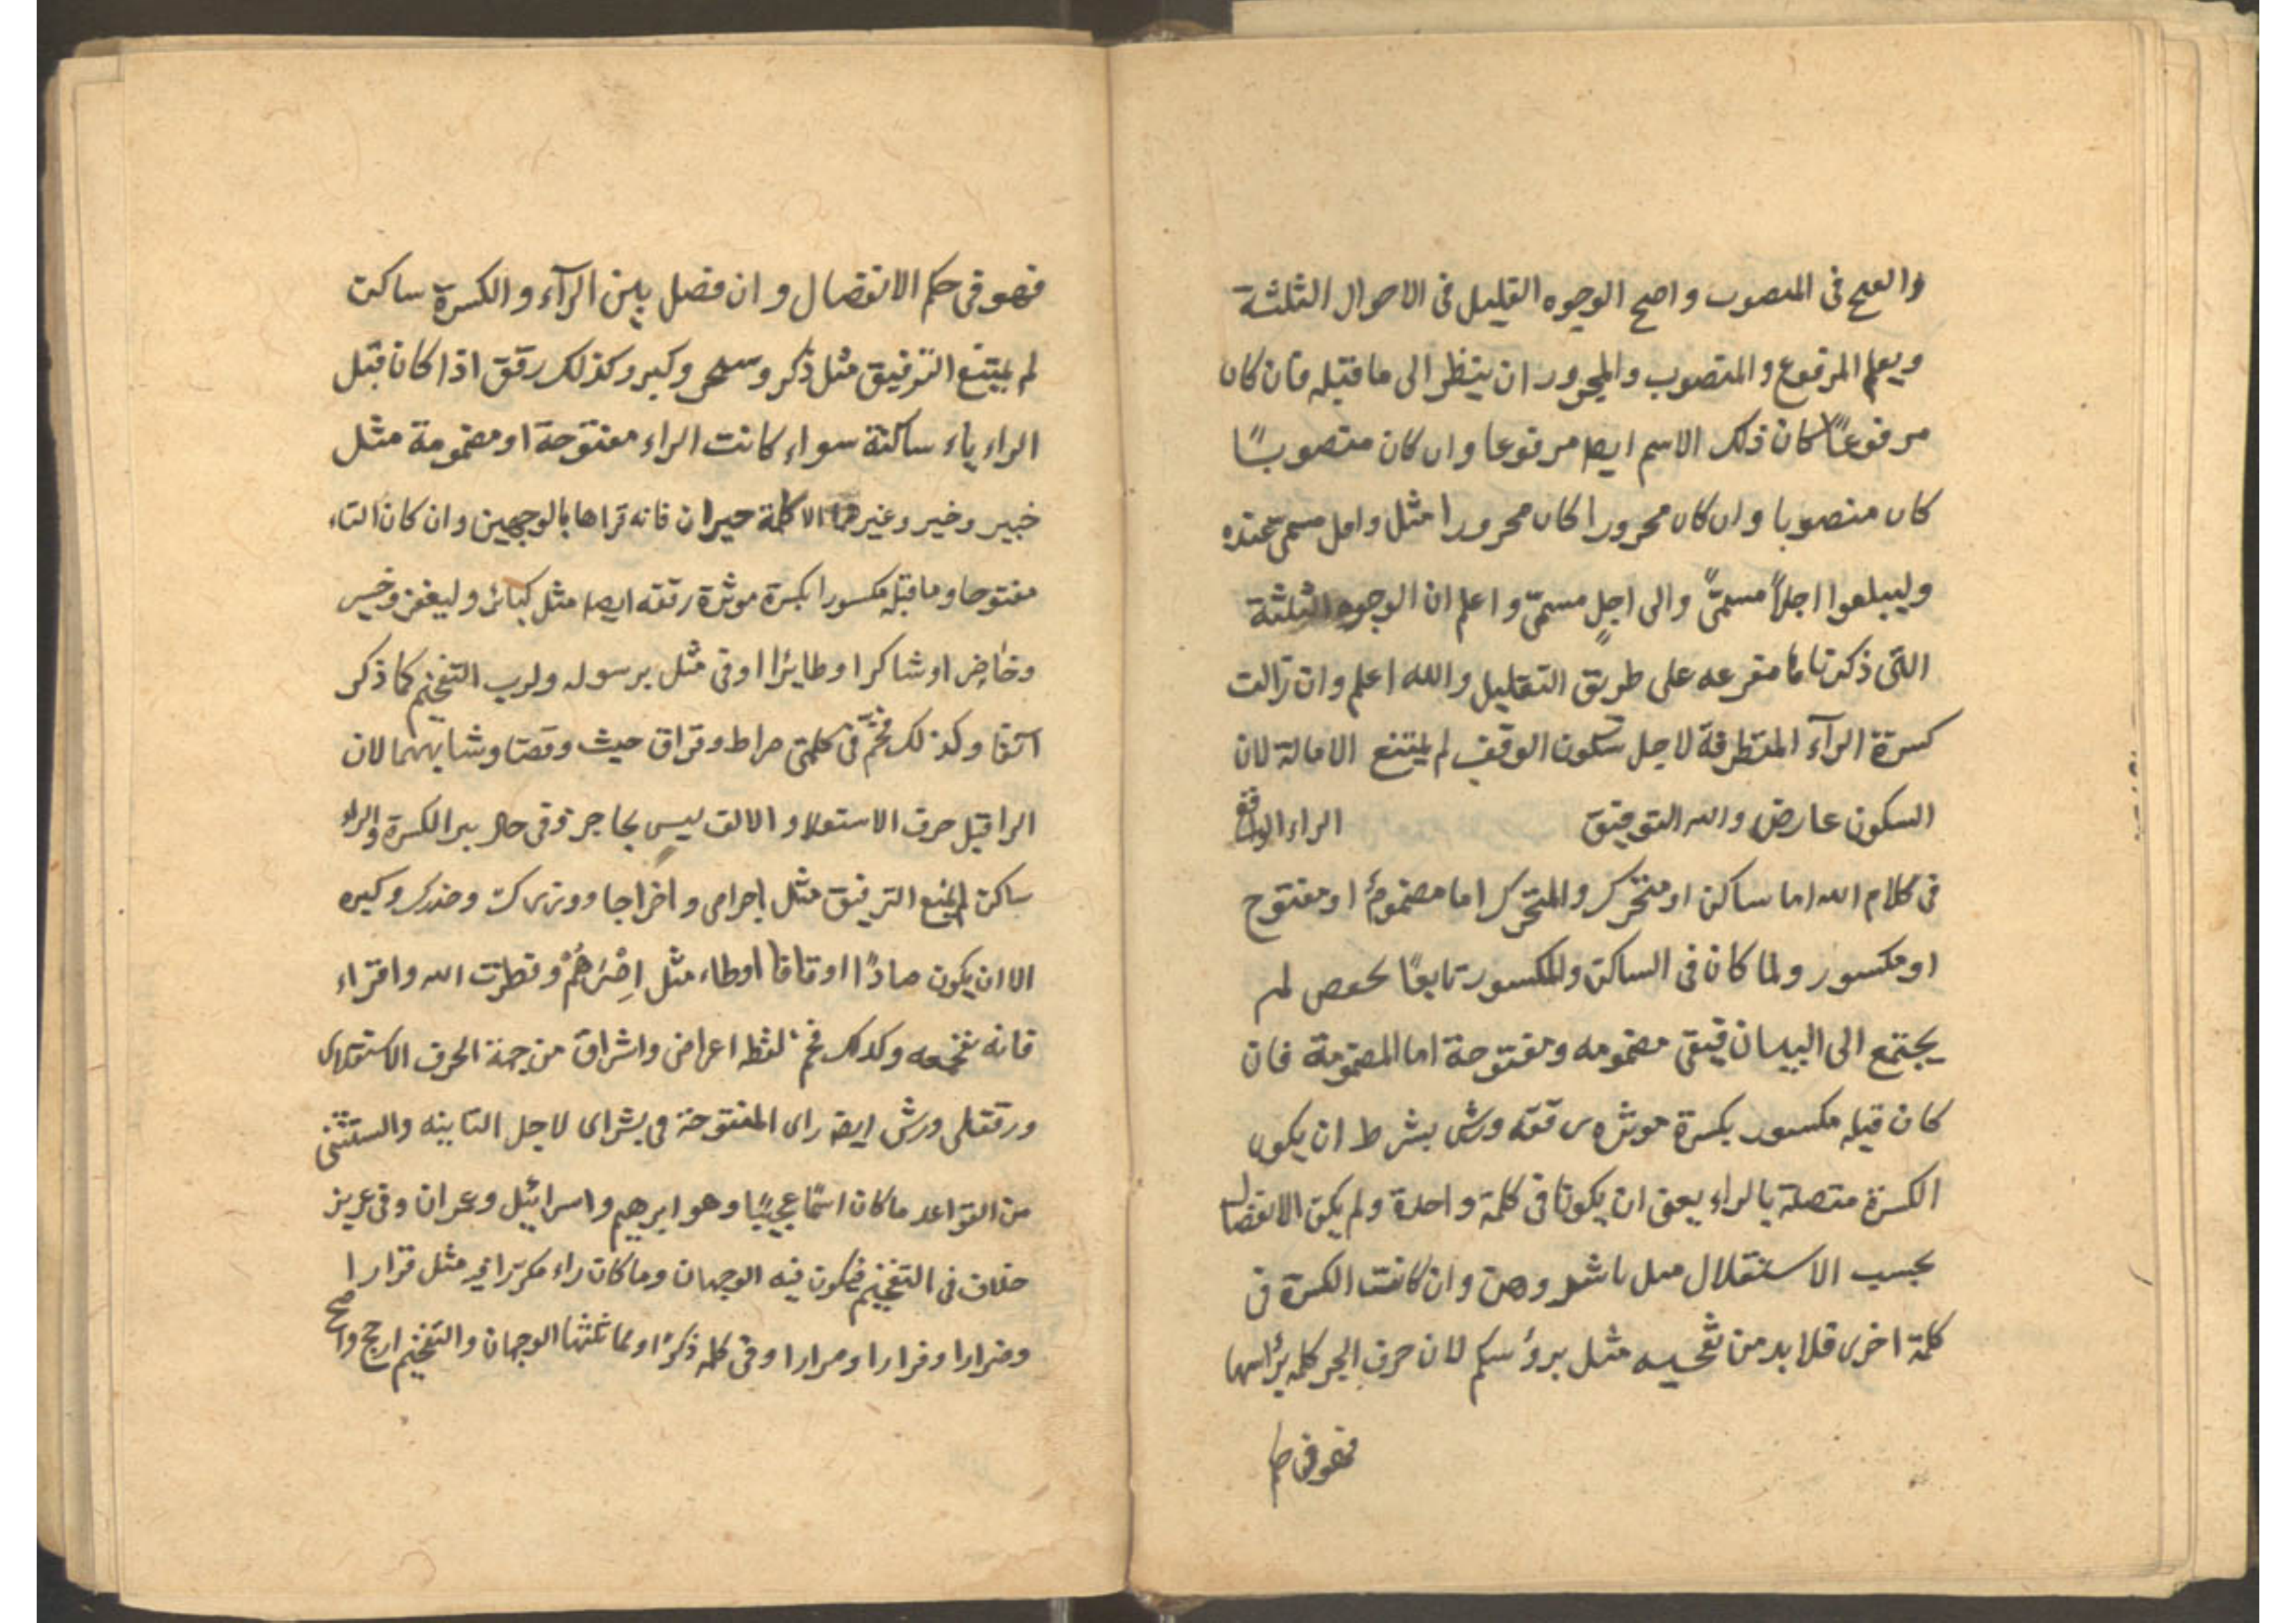 والفتح فى المنصوب واصح الوجوه التقليل فى الاحوال الثلثة
ويعلم المرفوع والمنصوب والمجرور ان ينظر الى ما قبله فان كان
مرفوعًا كان ذلك الاسم ايضا مرفوعا وان كان منصوبًا
كان منصوبا وان كان مجرورا كان مجرورا مثل واجل مسمى عنده
وليبلغوا اجلاً مسمىً والى اجلٍ مسمىّ واعلم ان الوجوه الثلثة
التى ذكرناها متفرعه على طريق التقليل والله اعلم وان زالت
كسرة الرآء المتطرفة لاجل سكون الوقف لم يمتنع الامالة لان
السكون عارض والله التوفيق الراء الواقع
فى كلام الله اما ساكن او متحرك والمتحرك اما مضموم او مفتوح
او مكسور ولما كان فى الساكن والمكسور تابعًا لحفص لم
يجتمع الى البيان فبقى مضمومه ومفتوحة اما المضمومة فان
كان قبله مكسور بكسرة موثره رققه ورش بشرط ان يكون
الكسرة متصلة بالراء يعنى ان يكونا فى كلمة واحدة ولم يكن الانفصال
بحسب الاستقلال مثل باشروهن وان كانت الكسرة فى
كلمة اخرى فلا بد من تفخيمه مثل برؤسكم لان حرف الجر كلمه برأسها
فهو فى حكم
فهو فى حكم الانفصال وان فصل بين الرآء والكسرة ساكن
لم يمتنع الترقيق مثل ذكر وسحر وكبر وكذلك رقق اذا كان قبل
الراء ياء ساكنة سواء كانت الراء مفتوحة او مضمومة مثل
خبير وخير وغيرهما الا كلمة حيران فانه قراها بالوجهين وان كان الراء
مفتوحا وما قبله مكسورا بكسرة موثرة رققه ايضا مثل كبائر وليغفر وخسر
وخاضر او شاكرا وطايرا اوفى مثل برسوله ولرب التفخيم كما ذكر
آنفا وكذلك فخّم فى كلمتى صراط وفراق حيث وقعتا وشابههما لان
الرا قبل حرف الاستعلا والالف ليس بحاجز وفى حال بين الكسرة والراء
ساكن لم يمنع الترقيق مثل اجرامى واخراجا ووزرك وحذرك وكبره
الا ان يكون صادًا او قافا او طاء مثل اِصْرَهُمْ وفطرت الله وافتراء
فانه يفخمه وكذلك فخم لفظ اعراض واشراق من جهة الحرف الاستعلاى
ورققلى ورش ايضا راى المفتوحة فى بشراى لاجل الثانيه والستثنى
من القواعد ما كان اسمًا عجميًا وهو ابرهيم واسرائيل وعمران وفى عزيز
خلاف فى التفخيم فيكون فيه الوجهان وما كان راء مكررا فى مثل قرارا
وضرارا وفرارا ومرارا وفى كلمه ذكرًا وكما ثلثها الوجهان والتفخيم ارجح واصح